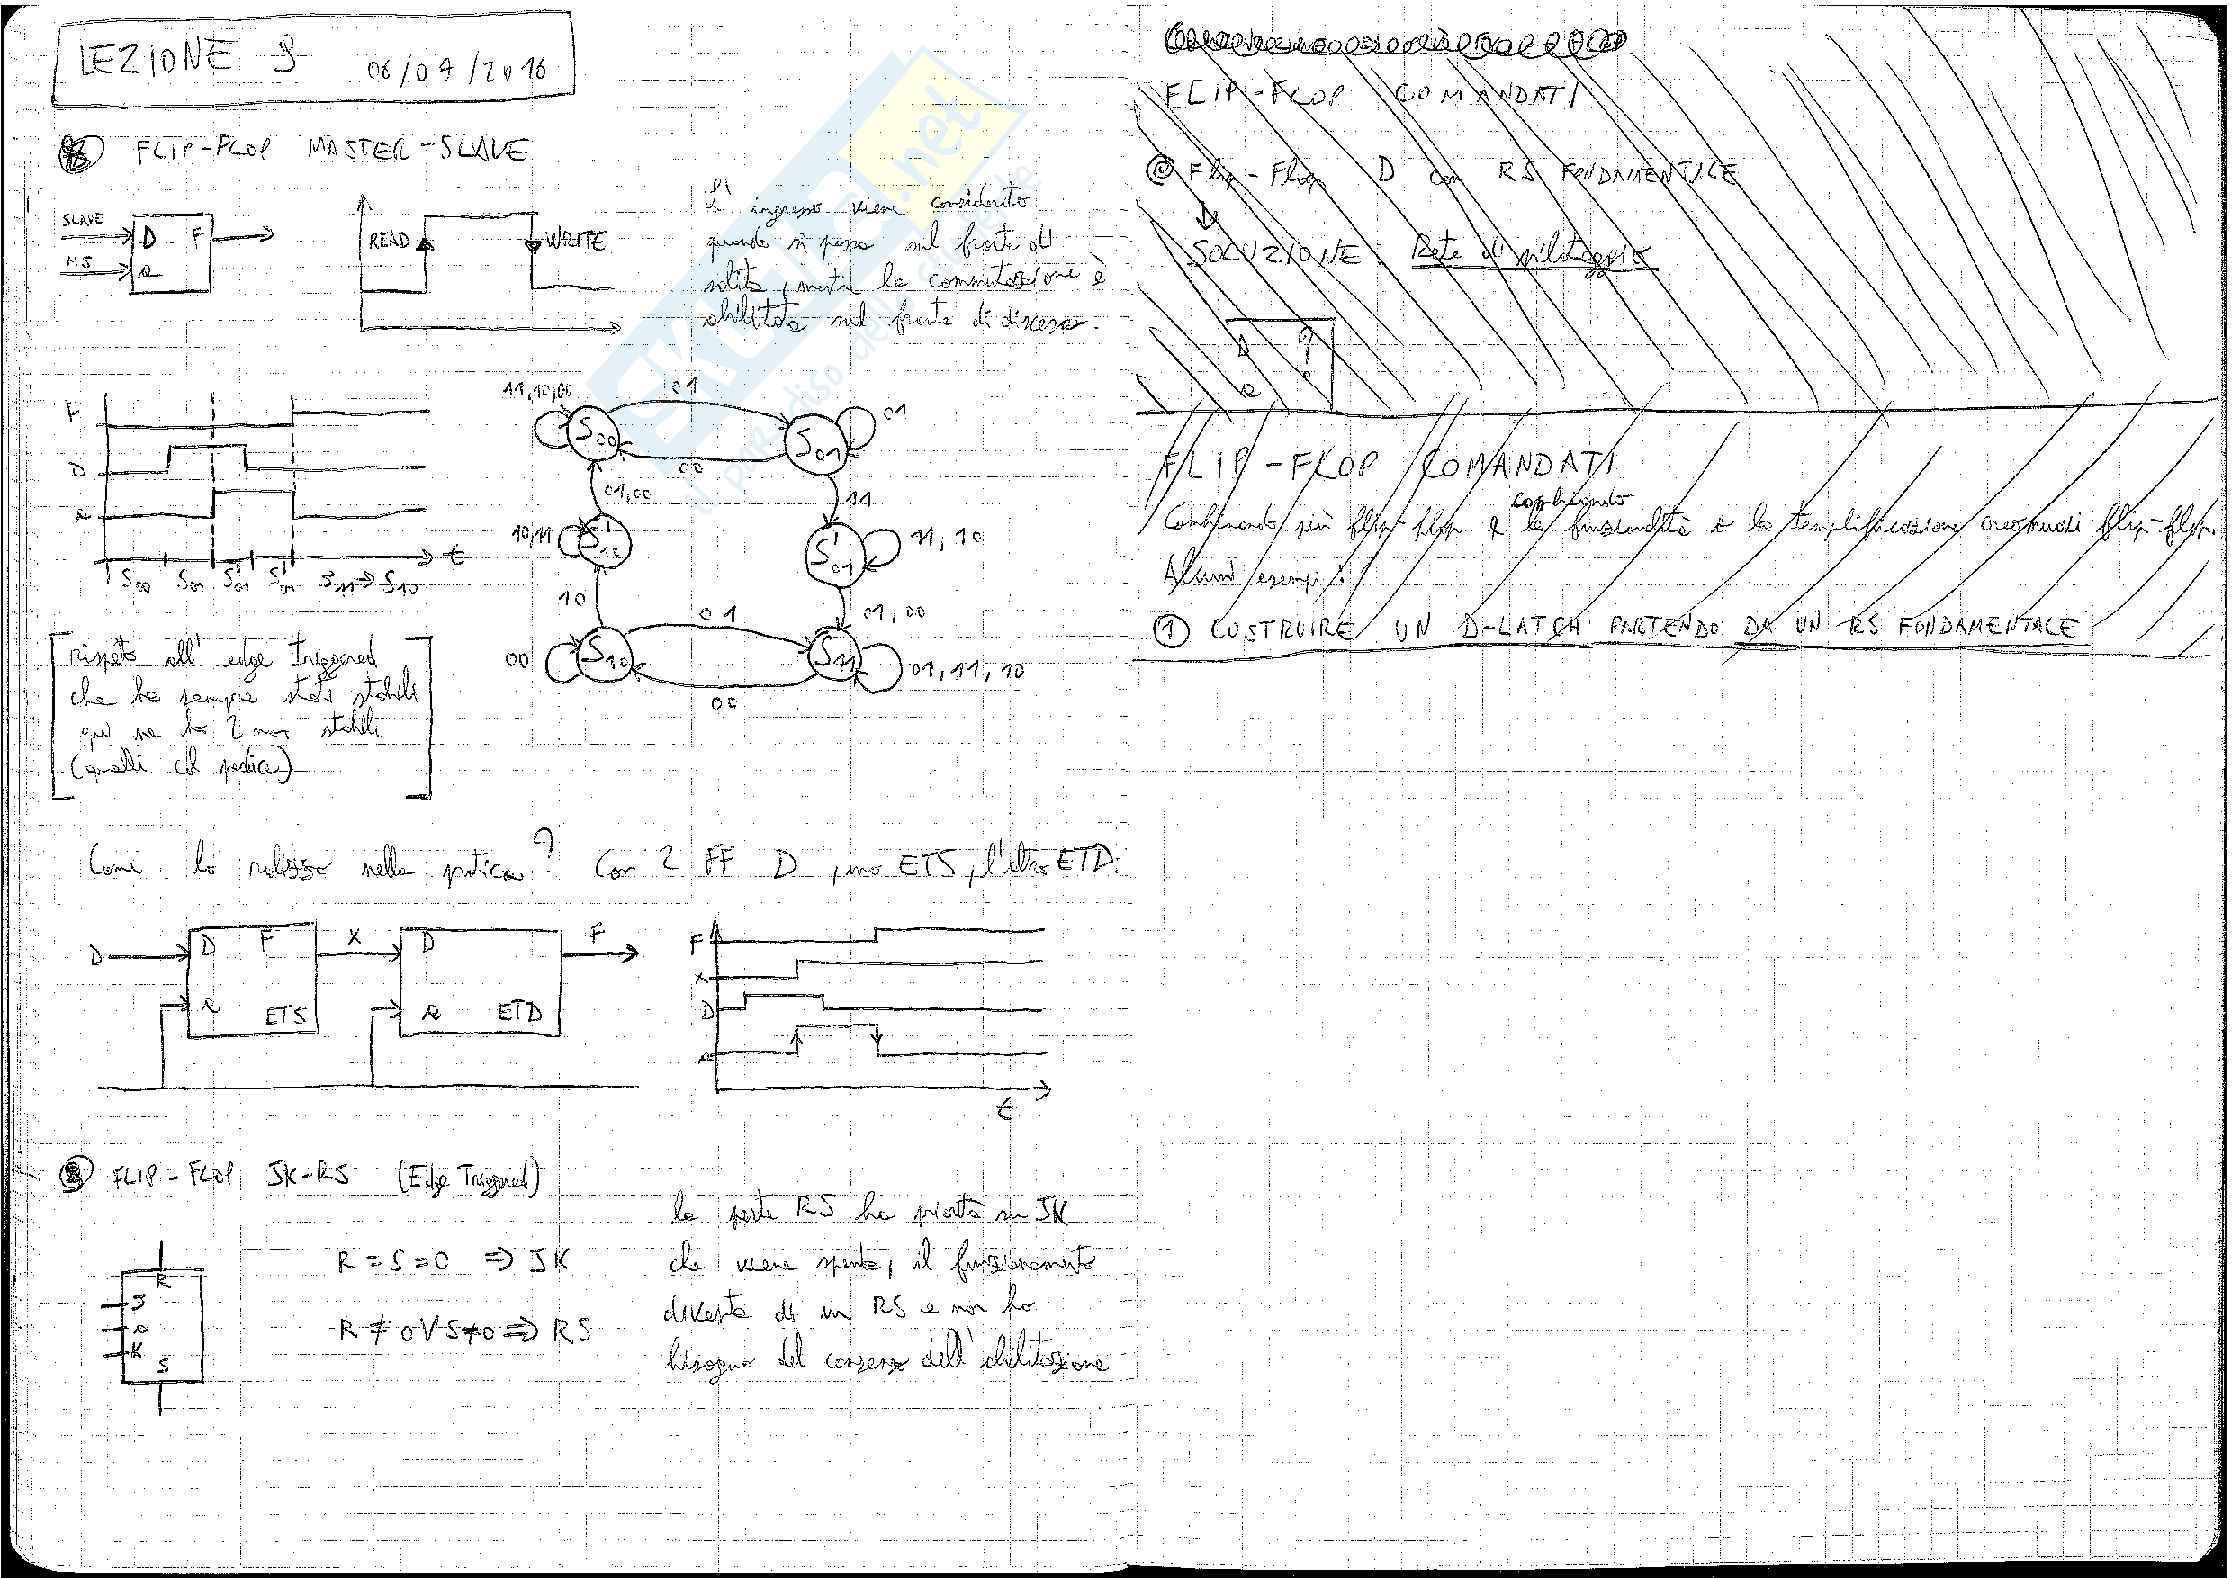 LEZIONE 9 06/04/2016
FLIP-FLOP MASTER-SLAVE
SLAVE
MS
D F
READ
WRITE
L'ingresso viene considerato
quando si passa sul fronte di
salita, mentre la commutazione è
abilitata sul fronte di discesa.
F
D
S00 S01 S'01 S'01 S11 => S10
t
11,10,00
01
S00
S01
01
00
01,00
11
10,11
S'12
S'01
11, 10
10
01,00
01
00
S10
S11
01, 11, 10
00
rispetto all' edge triggered
che ha sempre stati stabili
qui ne ho 2 non stabili
(quelli col pedice)
Come lo realizzo nella pratica? Con 2 FF D, uno ETS, l'altro ETD.
D
D F
ETS
X
D
ETD
F
F
X
D
t
FLIP-FLOP JK-RS (Edge Triggered)
R
J
K
S
R = S = 0 => JK
R ≠ 0 V S ≠ 0 => RS
la parte RS ha priorità su JK
che viene spenta, il funzionamento
diventa di un RS e non ho
bisogno del consenso dell'abilitazione
FLIP-FLOP COMANDATI
Flip-Flop D con RS FONDAMENTALE
SOLUZIONE: Rete di pilotaggio
D
FLIP-FLOP COMANDATI
combinando
Combinando più flip-flop e la funzionalità e la templificazione creo nuovi flip-flop.
Alcuni esempi:
1 COSTRUIRE UN D-LATCH PARTENDO DA UN RS FONDAMENTALE
SKUOLA.net
il paradiso dello studente